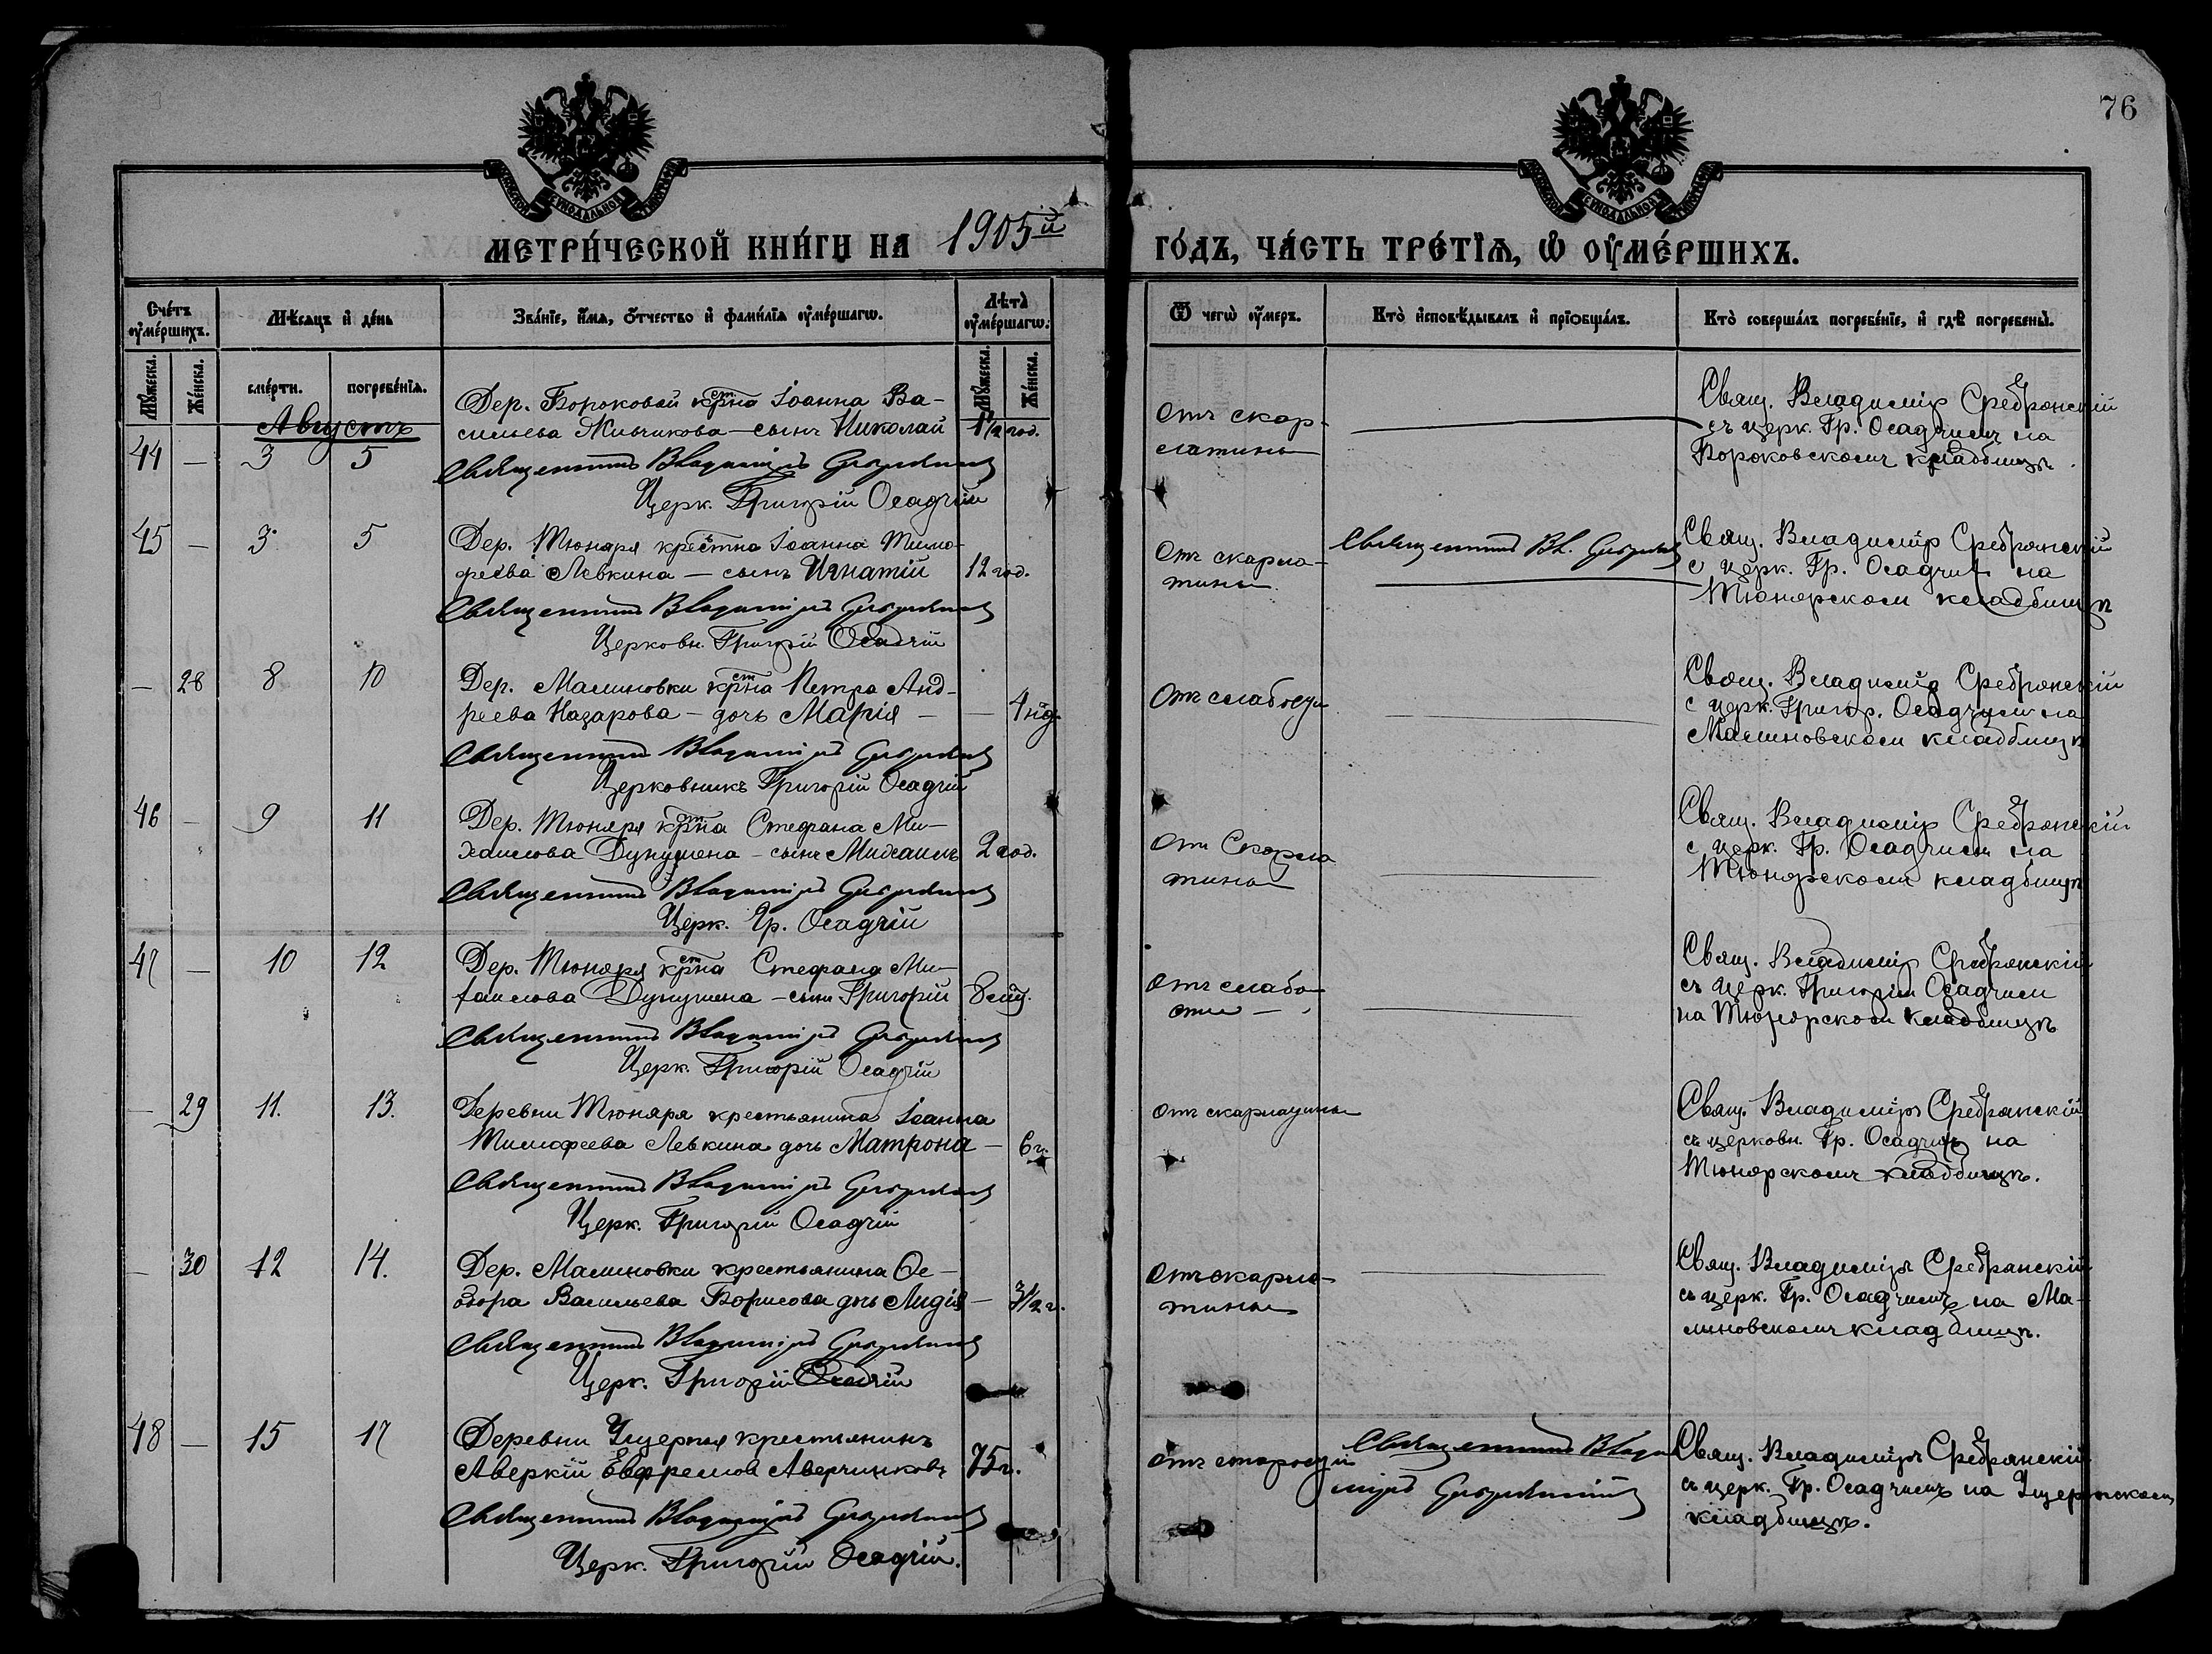 76
МЕТРИ́ЧЕСКОЙ КНИ́ГИ НА 1905й ГО́ДЪ, ЧА́СТЬ ТРЕ́ТЇѦ, Ѡ ОУМЕ́РШИХЪ.
Сче́тъ оумершихъ.
Мѣсяцъ и де́нь
Зва́нїе, и́мя, о́тчество и фами́лїя оуме́ршагѡ.
Лѣта̀ оуме́ршагѡ.
Ѿ чегѡ̀ оу́меръ.
Кто̀ исповѣ́дывалъ и прїобща́лъ.
Кто̀ соверша́лъ погребе́нїе, и гдѣ̀ погребены̀.
Мужеска.
Же́нска.
сме́рти.
погребе́нїя.
Мужеска.
Же́нска.
Августъ
44 — 3 5
Дер. Бороковой крстна Іоанна Ва-
сильева Живчикова — сынъ Николай 1½ год.
Священникъ Владиміръ Сребрянскій
Церк. Григорій Осадчій
Отъ скар-
латины
Свящ. Владиміръ Сребрянскій
съ церк. Гр. Осадчимъ на
Бороковскомъ кладбищѣ.
45 — 3 5
Дер. Тюняря крестна Іоанна Тимо-
феева Левкина — сынъ Игнатій 12 год.
Священникъ Владиміръ Сребрянскій
Церковн. Григорій Осадчій
Отъ скарла-
тины
Священникъ Вл. Сребрянскій
Свящ. Владиміръ Сребрянскій
с церк. Гр. Осадчим на
Тюнярском кладбищѣ
— 28 8 10
Дер. Малиновки крстна Петра Анд-
реева Назарова — дочь Марія — — 4 нѣд.
Священникъ Владиміръ Сребрянскій
Церковникъ Григорій Осадчій
Отъ слабости
Свящ. Владиміръ Сребрянскій
с церк. Григор. Осадчимъ на
Малиновском кладбищѣ
46 — 9 11
Дер. Тюняря крстна Стефана Ми-
хаилова — сынъ Михаилъ 2 год.
Священникъ Владиміръ Сребрянскій
Церк. Гр. Осадчій
Отъ Скарла
тины
Свящ. Владиміръ Сребрянскій
с церк. Гр. Осадчимъ на
Тюнярскомъ кладбищѣ
47 — 10 12
Дер. Тюняря крстна Стефана Ми-
хаилова — сынъ Григорій 8 мѣс.
Священникъ Владиміръ Сребрянскій
Церк. Григорій Осадчій
Отъ слабо
сти —
Свящ. Владиміръ Сребрянскій
съ церк. Григоріем Осадчим
на Тюнярском кладбищѣ
— 29 11. 13.
Деревни Тюняря крестьянина Іоанна
Тимофеева Левкина дочь Матрона — 6 г.
Священникъ Владиміръ Сребрянскій
Церк. Григорій Осадчій
Отъ скарлатины
Свящ. Владиміръ Сребрянскій
съ церковн. Гр. Осадчимъ на
Тюнярскомъ кладбищѣ.
— 30 12 14.
Дер. Малиновки крестьянина Ѳе-
одора Васильева Борисова дочь Лидія — 3½ г.
Священникъ Владиміръ Сребрянскій
Церк. Григорій Осадчій
Отъ скарла-
тины
Свящ. Владиміръ Сребрянскій
съ церк. Гр. Осадчимъ на Ма-
линовскомъ кладбищѣ.
48 — 15 17
Деревни крестьянинъ
Аверкій Евфремовъ Аверчинковъ 75 г.
Священникъ Владиміръ Сребрянскій
Церк. Григорій Осадчій.
Отъ старости
Священникъ Влади
міръ Сребрянскій
Свящ. Владиміръ Сребрянскій
съ церк. Гр. Осадчимъ на
кладбищѣ.